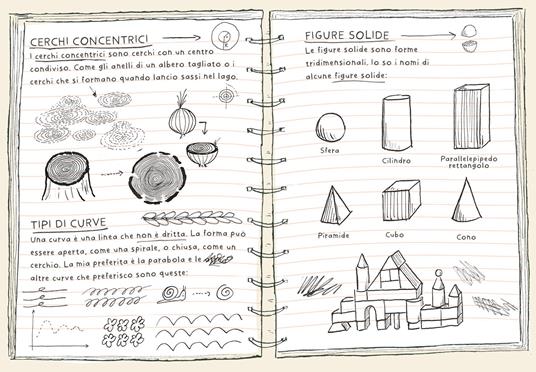 CERCHI CONCENTRICI
I cerchi concentrici sono cerchi con un centro
condiviso. Come gli anelli di un albero tagliato o i
cerchi che si formano quando lancio sassi nel lago.
TIPI DI CURVE
Una curva è una linea che non è dritta. La forma può
essere aperta, come una spirale, o chiusa, come un
cerchio. La mia preferita è la parabola e le
altre curve che preferisco sono queste:
FIGURE SOLIDE
Le figure solide sono forme
tridimensionali. Io so i nomi di
alcune figure solide:
Sfera
Cilindro
Parallelepipedo
rettangolo
Piramide
Cubo
Cono